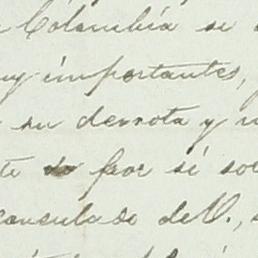 Colombia se
uy importantes,
su derrota y
te feor si sol
consulado de V., s